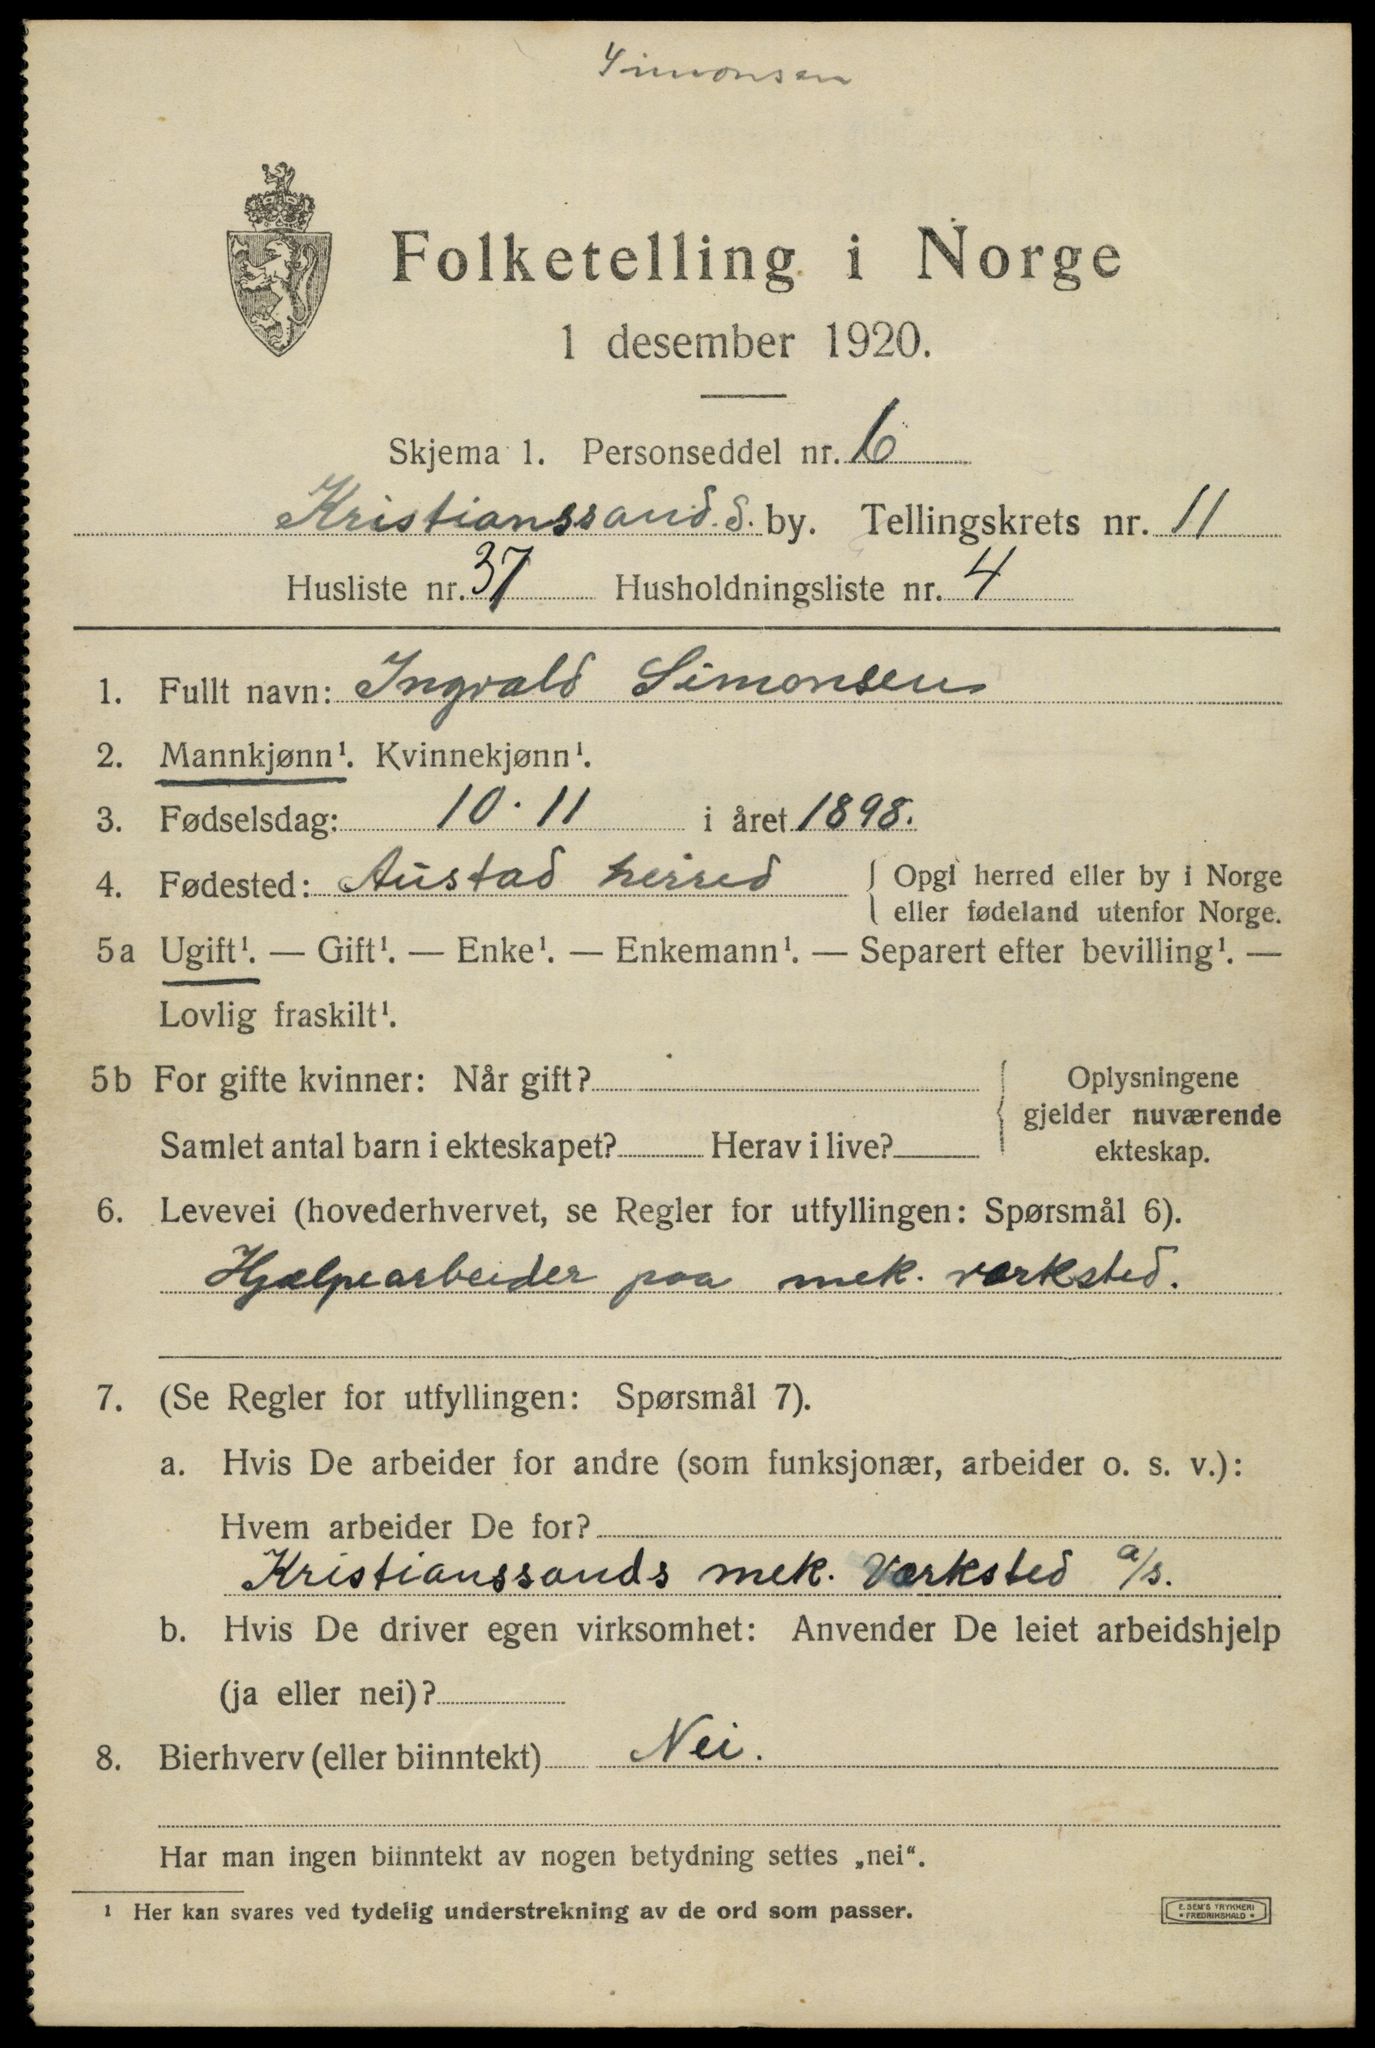 Simonsen
Folketelling i Norge
1 desember 1920.
Skjema 1. Personseddel nr. 6
Kristianssand. S. by. Tellingskrets nr. 11
Husliste nr. 37 Husholdningsliste nr. 4
1. Fullt navn: Ingvald Simonsen
2. Mannkjønn¹. Kvinnekjønn¹.
3. Fødselsdag: 10.11 i året 1898.
4. Fødested: Austad herred { Opgi herred eller by i Norge
eller fødeland utenfor Norge.
5a Ugift¹. — Gift¹. — Enke¹. — Enkemann¹. — Separert efter bevilling¹. —
Lovlig fraskilt¹.
5b For gifte kvinner: Når gift? { Oplysningene
gjelder nuværende
Samlet antal barn i ekteskapet? Herav i live? ekteskap.
6. Levevei (hovederhvervet, se Regler for utfyllingen: Spørsmål 6).
Hjælpearbeider paa mek. værksted.
7. (Se Regler for utfyllingen: Spørsmål 7).
a. Hvis De arbeider for andre (som funksjonær, arbeider o. s. v.):
Hvem arbeider De for?
Kristianssands mek. Værksted a/s.
b. Hvis De driver egen virksomhet: Anvender De leiet arbeidshjelp
(ja eller nei)?
8. Bierhverv (eller biinntekt) Nei.
Har man ingen biinntekt av nogen betydning settes „nei“.
¹ Her kan svares ved tydelig understrekning av de ord som passer.
E. SEM'S TRYKKERI
* FREDRIKSHALD *